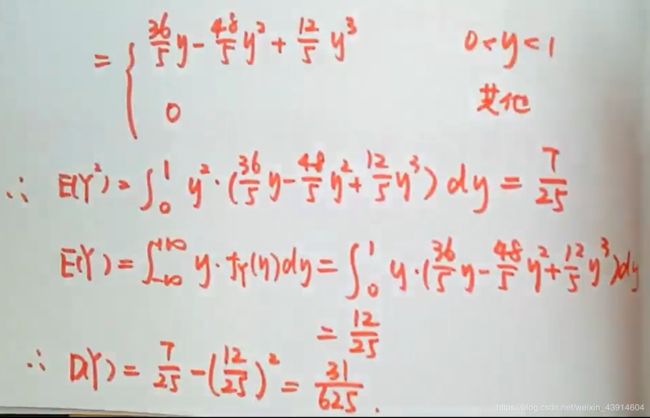 = { 36/5 y - 48/5 y² + 12/5 y³ 0<y<1
0 其他
∴ E(Y²) = ∫₀¹ y²·(36/5 y - 48/5 y² + 12/5 y³) dy = 7/25
E(Y) = ∫₋∞⁺∞ y·f_Y(y)dy = ∫₀¹ y·(36/5 y - 48/5 y² + 12/5 y³)dy
= 12/25
∴ D(Y) = 7/25 - (12/25)² = 31/625.
https://blog.csdn.net/weixin_43914604